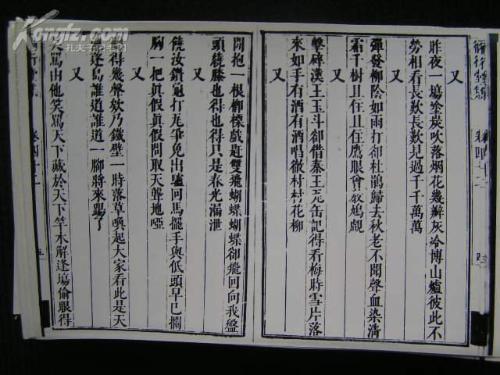 又
昨夜一場塗炭吹落烟花幾瓣灰冷博山爐彼此不
勞相看長歎長歎見過千千萬萬
又
彈發柳陰如雨打却杜鵑歸去秋老不聞聲血染清
霜千樹且住且住鷹眼會
又
擊碎漢王玉斗却借秦王元缶記得看梅時雪片落
來如手有酒有酒唱徹村村花柳
又
閒抱一根柳櫟戲趕雙飛蝴蝶蝴蝶却飛回向我盤
頭繞膝也只得也只是春光漏泄
又
饒汝鑽龜打瓦爭免出驢回馬擺手與低頭早巳攔
胸一把真假真假問取天聾地啞
又
得幾聲欸乃鐵壁一時落草喚起大家看此是天
蓬島誰道誰道一腳將來踢了
又
笑罵由他笑罵天下藏於天下竿木解逢塲偷眼得
卷四十二